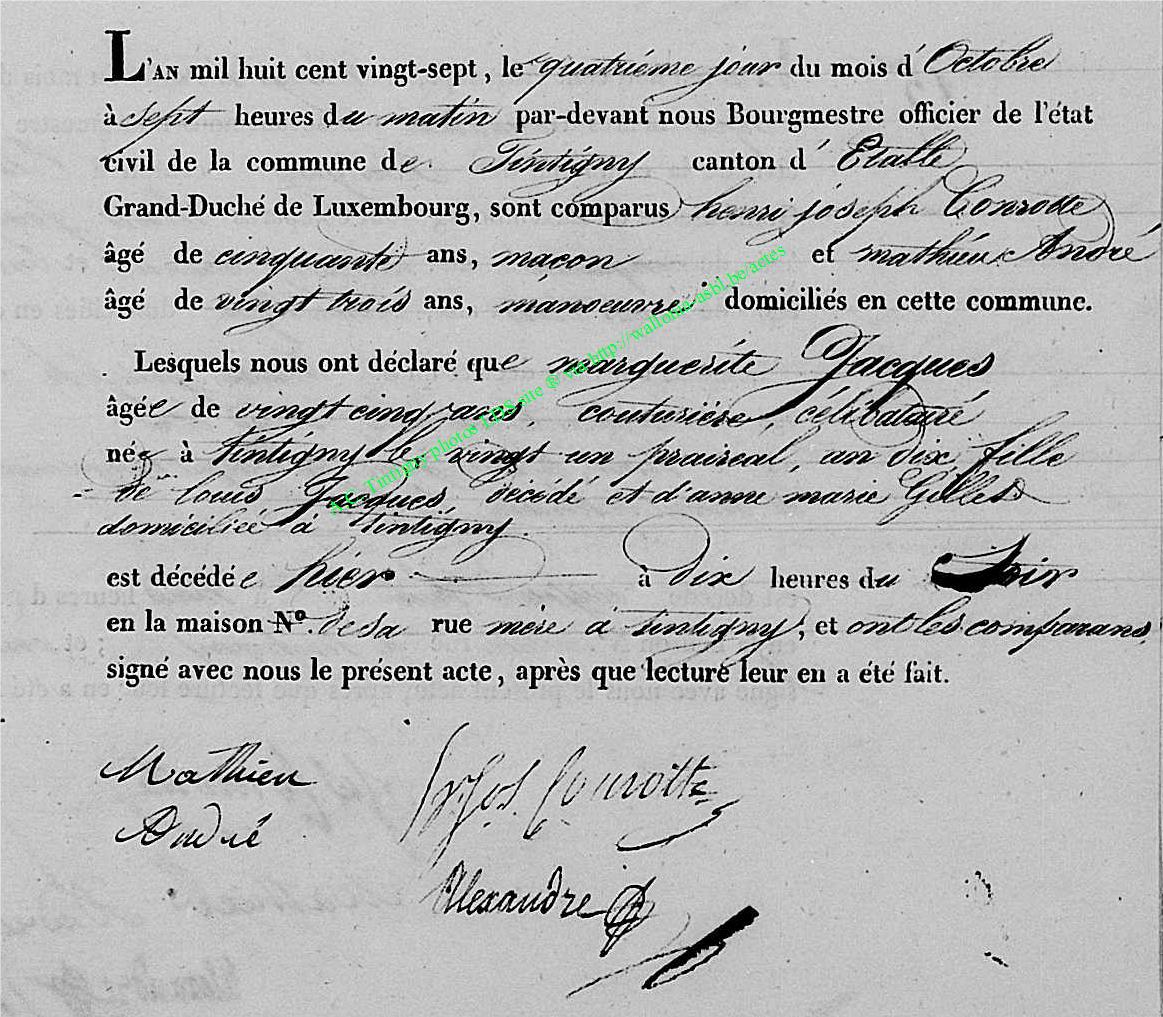 L'AN mil huit cent vingt-sept, le quatriéme jour du mois d'Octobre
à sept heures du matin par-devant nous Bourgmestre officier de l'état
civil de la commune de Tintigny canton d'Etalle
Grand-Duché de Luxembourg, sont comparus henri joseph Conrotte
âgé de cinquante ans, maçon et mathieu André
âgé de vingt trois ans, manoeuvre domiciliés en cette commune.
Lesquels nous ont déclaré que marguerite Jacques
âgée de vingt cinq ans, couturiére, célibataire
née à tintigny le vingt un praireal, an dix fille
de louis Jacques, décédé et d'anne marie Gilles
domiciliée à tintigny.
est décédée hier à dix heures du Soir
en la maison N° de sa rue mère à tintigny, et ont les comparans
signé avec nous le présent acte, après que lecture leur en a été fait.
A.C. Tintigny photos LDS site @ via http://wallonia-asbl.be/actes
Mathieu
André
hJos. Conrotte
Alexandre